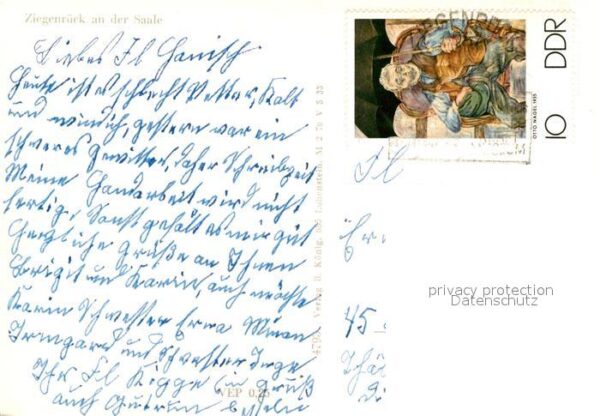 Ziegenrück an der Saale
Liebes Fl Hanisch
Heute ist es schlecht Wetter, Kalt
und windich, gestern war ein
schweres Gewitter, daher Schreibzeit
Meine Handarbeit wird nicht
fertig. Sonst gefällt es mir gut
Herzliche Grüße an Ihnen
Brigit und Karin, auch möchte
Karin Schwester Erna
Irmgard und Schwester Inge
Ihr Fl in Gruß
auch
VEP 0,25
Verlag H. König, Lobenstein M 2 70 V S 33
ZIEGENRÜCK
DDR
10
OTTO NAGEL 1955
Fl
45
privacy protection
Datenschutz